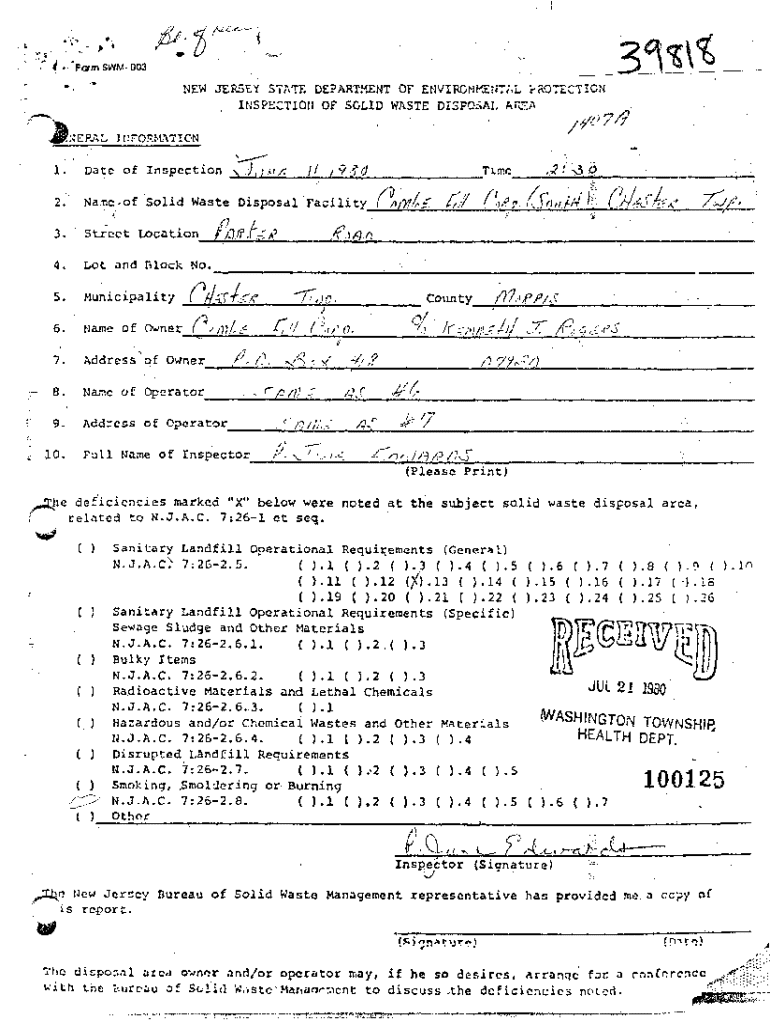 39818
Form SWM-003
NEW JERSEY STATE DEPARTMENT OF ENVIRONMENTAL PROTECTION
INSPECTION OF SOLID WASTE DISPOSAL AREA
1407A
GENERAL INFORMATION
1. Date of Inspection June 11, 1980 Time 2:30
2. Name of Solid Waste Disposal Facility Combe Fill Corp. (South) Chester Twp.
3. Street Location Parker Road
4. Lot and Block No.
5. Municipality Chester Twp. County Morris
6. Name of Owner Combe Fill Corp. % Kenneth J. Rogers
7. Address of Owner P.O. Box 07930
8. Name of Operator Same as #6
9. Address of Operator Same as #7
10. Full Name of Inspector P. June Edwards
(Please Print)
The deficiencies marked "X" below were noted at the subject solid waste disposal area,
related to N.J.A.C. 7:26-1 et seq.
( ) Sanitary Landfill Operational Requirements (General)
N.J.A.C. 7:26-2.5. ( ).1 ( ).2 ( ).3 ( ).4 ( ).5 ( ).6 ( ).7 ( ).8 ( ).9 ( ).10
( ).11 ( ).12 (X).13 ( ).14 ( ).15 ( ).16 ( ).17 ( ).18
( ).19 ( ).20 ( ).21 ( ).22 ( ).23 ( ).24 ( ).25 ( ).26
( ) Sanitary Landfill Operational Requirements (Specific)
Sewage Sludge and Other Materials
N.J.A.C. 7:26-2.6.1. ( ).1 ( ).2 ( ).3
( ) Bulky Items
N.J.A.C. 7:26-2.6.2. ( ).1 ( ).2 ( ).3
( ) Radioactive Materials and Lethal Chemicals
N.J.A.C. 7:26-2.6.3. ( ).1
( ) Hazardous and/or Chemical Wastes and Other Materials
N.J.A.C. 7:26-2.6.4. ( ).1 ( ).2 ( ).3 ( ).4
( ) Disrupted Landfill Requirements
N.J.A.C. 7:26-2.7. ( ).1 ( ).2 ( ).3 ( ).4 ( ).5
( ) Smoking, Smoldering or Burning
N.J.A.C. 7:26-2.8. ( ).1 ( ).2 ( ).3 ( ).4 ( ).5 ( ).6 ( ).7
( ) Other
RECEIVED
JUL 21 1980
WASHINGTON TOWNSHIP
HEALTH DEPT.
100125
P. June Edwards
Inspector (Signature)
The New Jersey Bureau of Solid Waste Management representative has provided me a copy of
is report.
(Signature) (Date)
The disposal area owner and/or operator may, if he so desires, arrange for a conference
with the Bureau of Solid Waste Management to discuss the deficiencies noted.